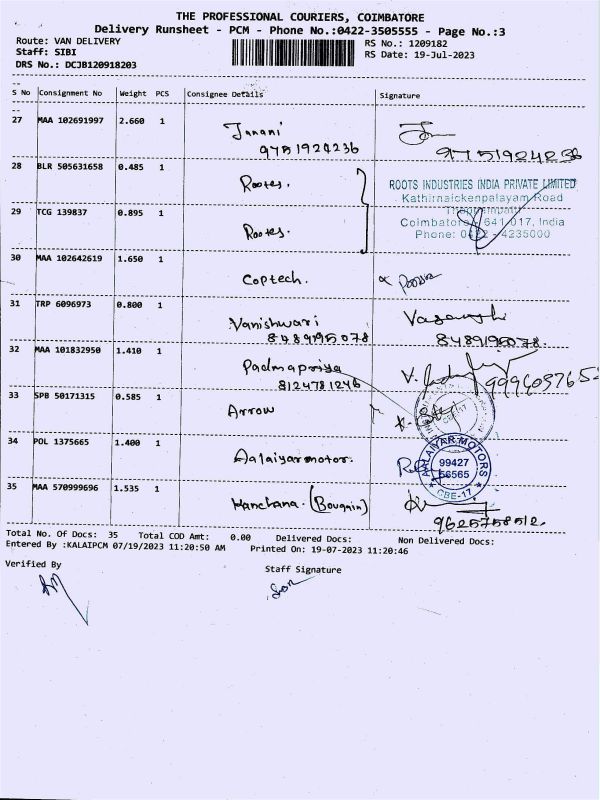 THE PROFESSIONAL COURIERS, COIMBATORE
Delivery Runsheet - PCM - Phone No.:0422-3505555 - Page No.:3
Route: VAN DELIVERY RS No.: 1209182
Staff: SIBI RS Date: 19-Jul-2023
DRS No.: DCJB120918203
S No Consignment No Weight PCS Consignee Details Signature
27 MAA 102691997 2.660 1 Janani
9751924236 9751924236
28 BLR 505631658 0.485 1 Rootes. ROOTS INDUSTRIES INDIA PRIVATE LIMITED
Kathirnaickenpalayam Road
29 TCG 139837 0.895 1 Rootes. Coimbatore - 641 017, India
Phone: 0422 - 4235000
30 MAA 102642619 1.650 1 Coptech.
31 TRP 6096973 0.800 1 Vanishwari
8489195078 8489195078.
32 MAA 101832950 1.410 1 Padmapriya
8124781246
33 SPB 50171315 0.585 1 Arrow
34 POL 1375665 1.400 1 Aalaiyarmotor. AALAIYAR MOTORS
99427
56565
CBE-17
35 MAA 570999696 1.535 1 Kanchana. (Bougain)
9625758512.
Total No. Of Docs: 35 Total COD Amt: 0.00 Delivered Docs: Non Delivered Docs:
Entered By :KALAIPCM 07/19/2023 11:20:50 AM Printed On: 19-07-2023 11:20:46
Verified By Staff Signature